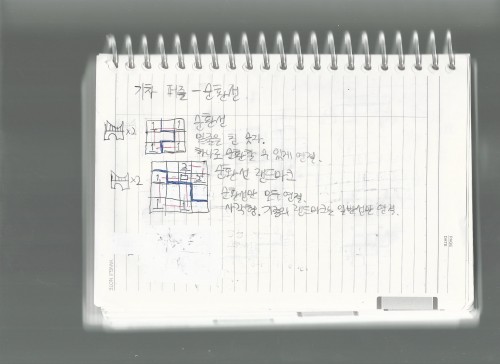 기차 퍼즐 - 순환선
×2
순환선
밑줄을 친 숫자.
하나로 순환할 수 있게 연결.
×2
순환선 랜드마크
순환선만 모두 연결.
사각형. 기존의 랜드마크는 일반선만 연결.